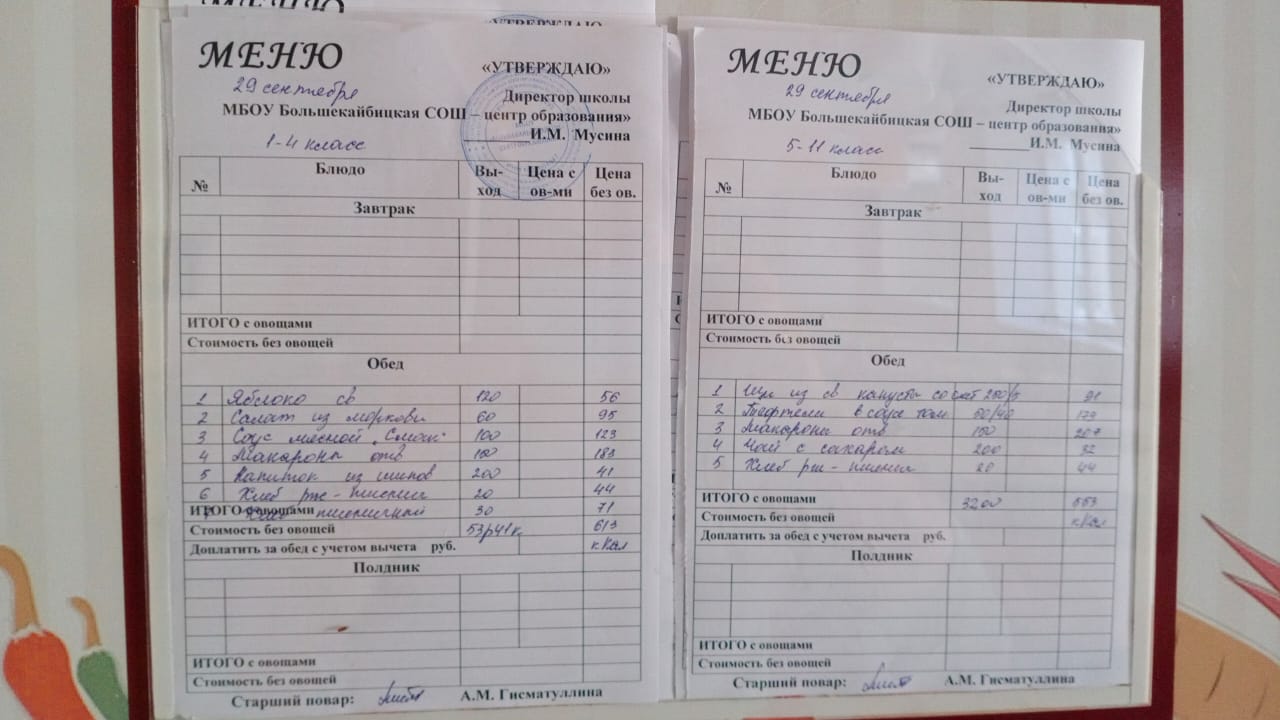 МЕНЮ
29 сентября
«УТВЕРЖДАЮ»
Директор школы
МБОУ Большекайбицкая СОШ – центр образования»
И.М. Мусина
1-4 класс
№ Блюдо Вы-ход Цена с ов-ми Цена без ов.
Завтрак
ИТОГО с овощами
Стоимость без овощей
Обед
1 Яблоко св 120 56
2 Салат из моркови 60 95
3 Соус мясной 100 123
4 Макароны отв 150 183
5 Напиток из шипов 200 41
6 Хлеб рж - пшенич 20 44
ИТОГО с овощами
Хлеб пшеничной 30 71
Стоимость без овощей 53р41к 613
Доплатить за обед с учетом вычета руб. кКал
Полдник
ИТОГО с овощами
Стоимость без овощей
Старший повар: А.М. Гисматуллина
МЕНЮ
29 сентября
«УТВЕРЖДАЮ»
Директор школы
МБОУ Большекайбицкая СОШ – центр образования»
И.М. Мусина
5-11 класс
№ Блюдо Вы-ход Цена с ов-ми Цена без ов.
Завтрак
ИТОГО с овощами
Стоимость без овощей
Обед
1 Щи из св капусты со смет 250/5 91
2 Тефтели в соусе том 179
3 Макароны отв 207
4 Чай с сахаром 200 32
5 Хлеб рж - пшенич 20 44
ИТОГО с овощами 553
Стоимость без овощей кКал
Доплатить за обед с учетом вычета руб.
Полдник
ИТОГО с овощами
Стоимость без овощей
Старший повар: А.М. Гисматуллина